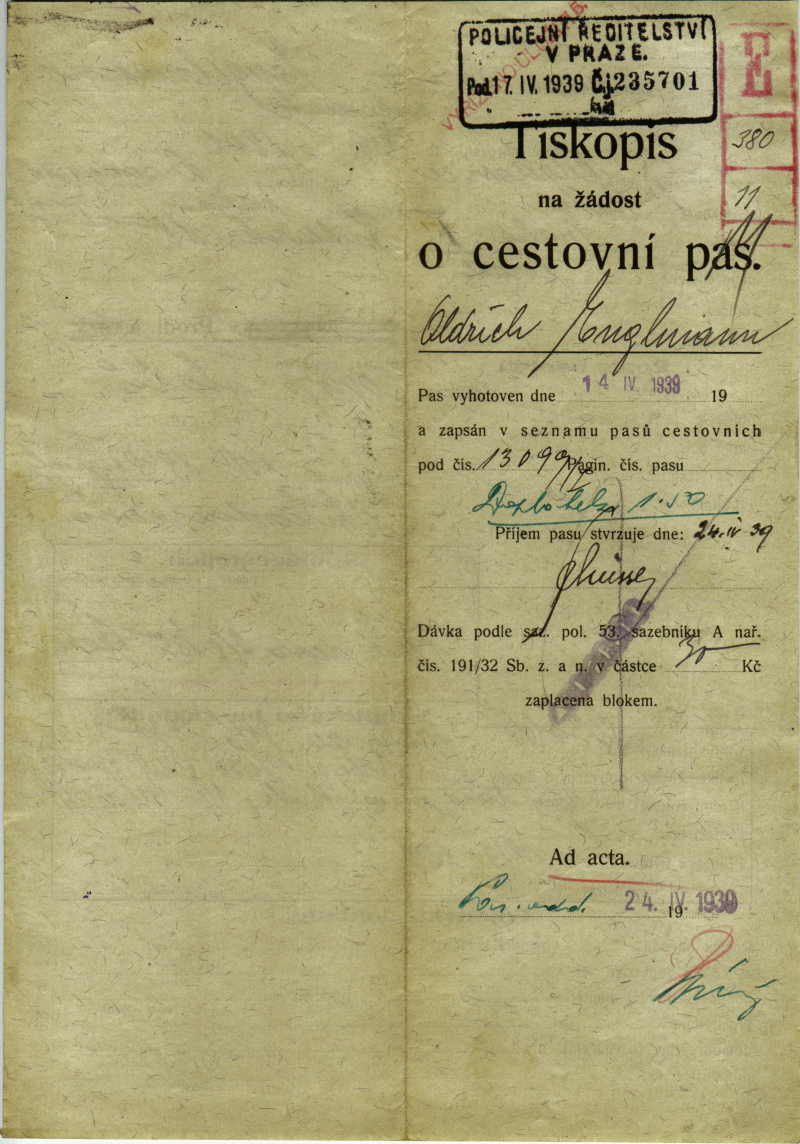 POLICEJNÍ ŘEDITELSTVÍ
V PRAZE.
Pod. 17. IV. 1939 Čj. 235701
E
380
11
Tiskopis
na žádost
o cestovní pas.
Oldrich Englmann
Pas vyhotoven dne 14 IV. 1939 19
a zapsán v seznamu pasů cestovních
pod čís. 13099 Pagin. čís. pasu
1.50
Příjem pasu stvrzuje dne: 24. IV 39
Dávka podle saz. pol. 53, sazebníku A nař.
čís. 191/32 Sb. z. a n. v částce 30 Kč
zaplacena blokem.
Ad acta.
24. IV. 1939 19